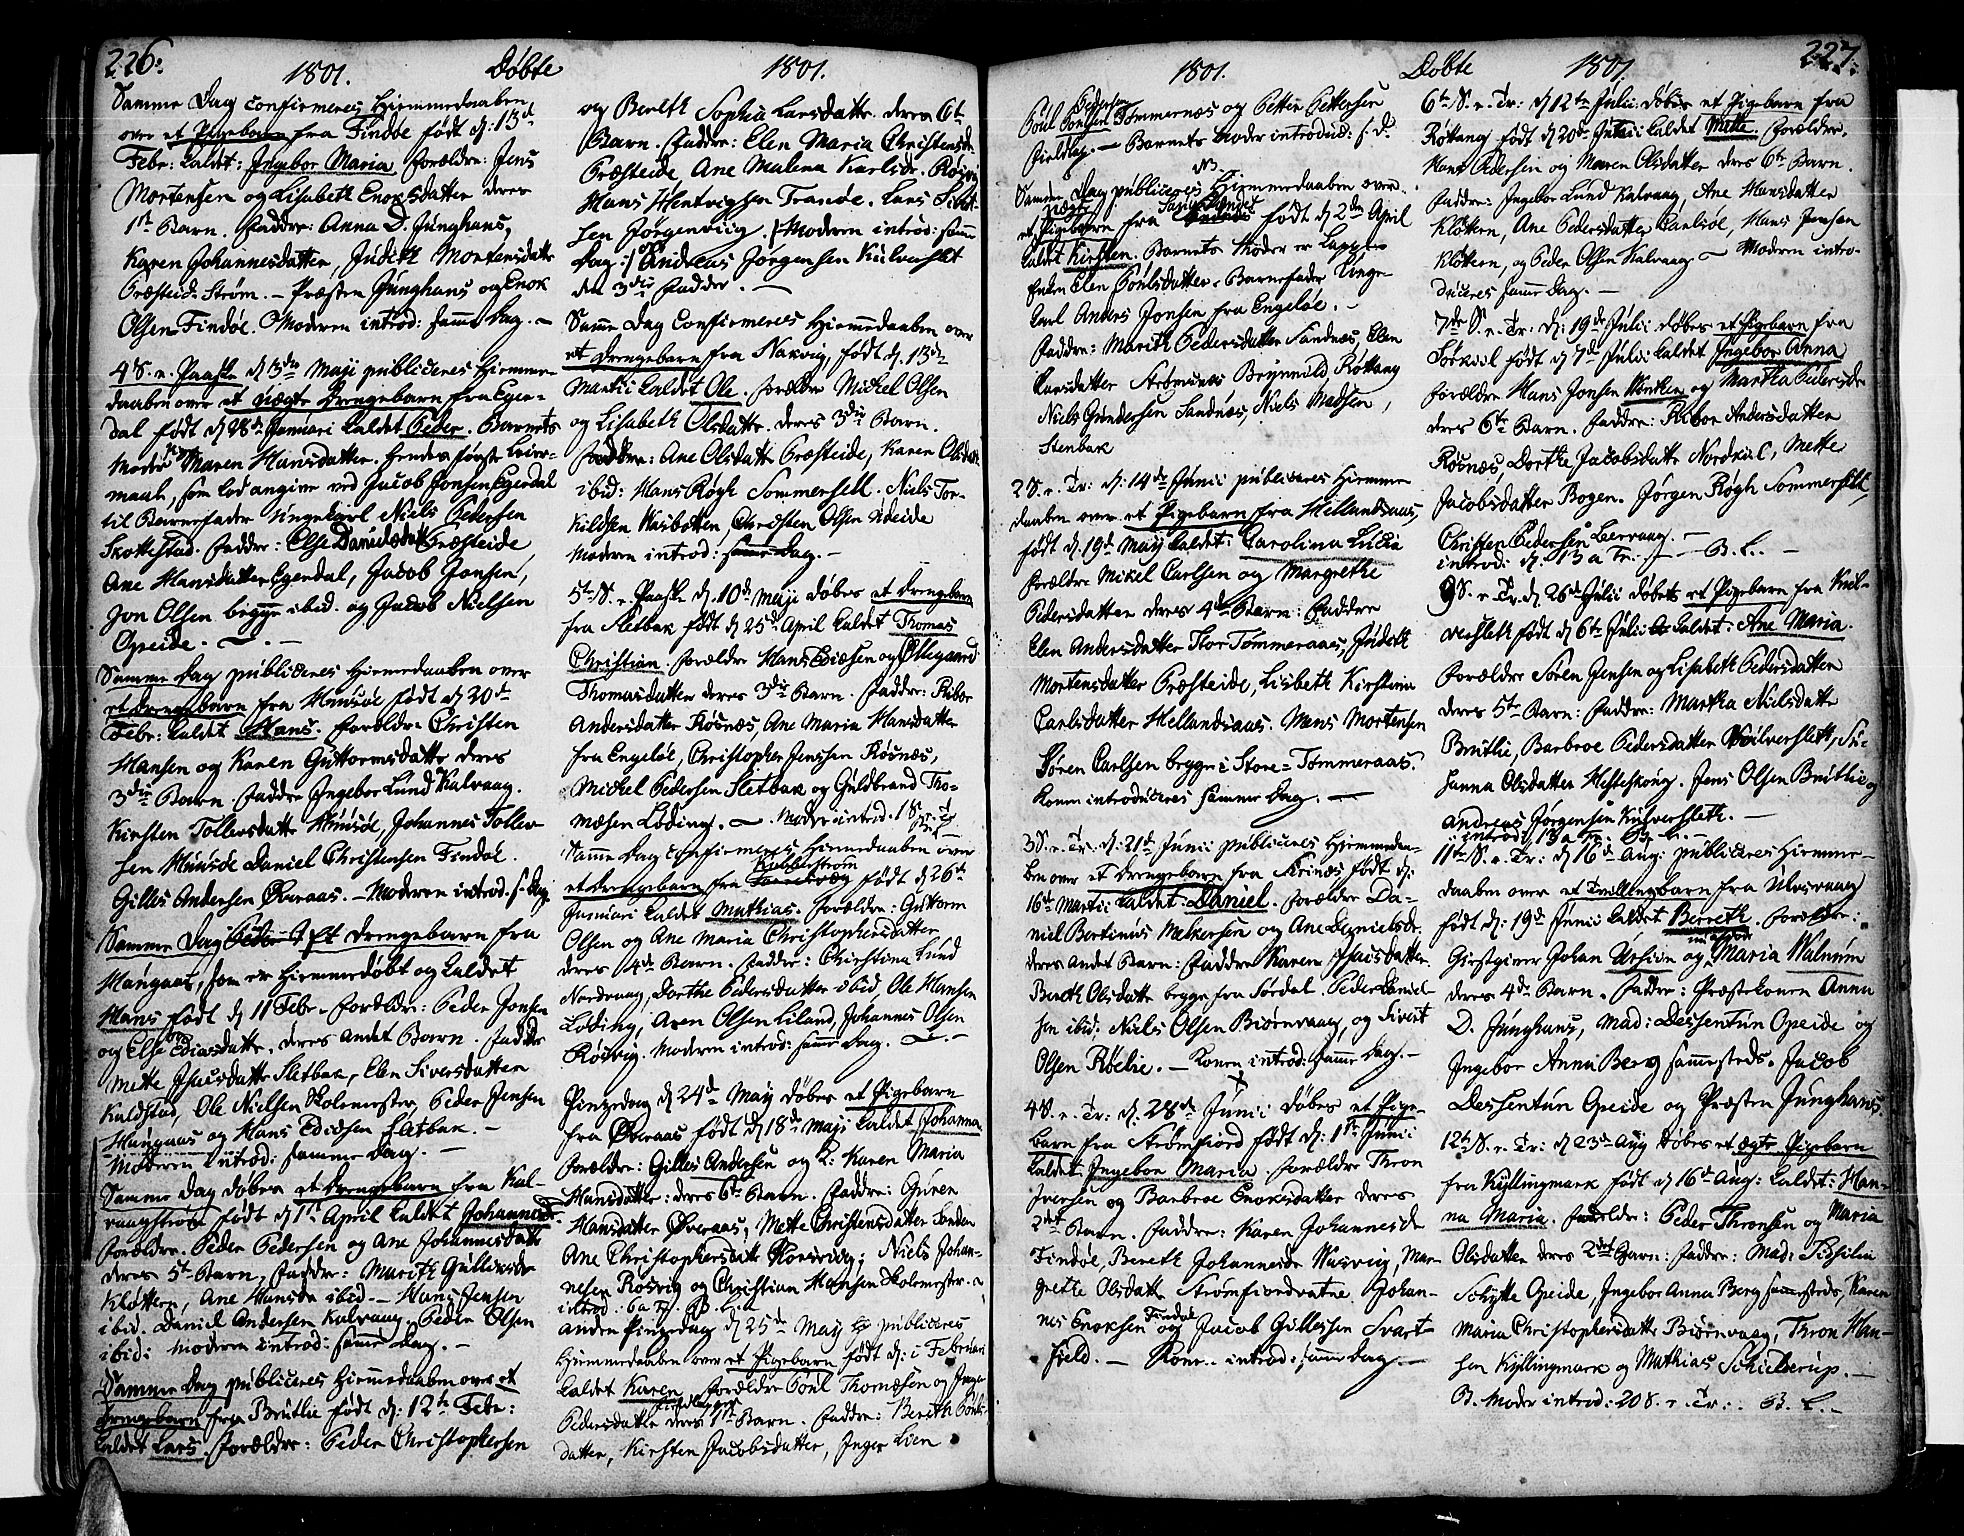 226.
1801. Døbte 1801.
Samme Dag confirmeres Hiemmedaaben
over et Pigebarn fra Findøe født d: 13d
Febr: kaldet: Ingebor Maria forældre: Jens
Mortensen og Lisabeth Enoksdatter deres
1st Barn. Faddre: Anna D. Junghans,
Karen Johannesdatter, Judith Mortensdatter
Præsteide Strøm. - Præsten Junghans og Enok
Olsen Findøe. Moderen introd: samme Dag. -
4 S. e. Paaske d 3die Maji publiceres Hiemme-
daaben over et uægte Drengebarn fra Eger-
dal født d 28d Januari kaldet Peder. Barnets
Moder Maren Hansdatter. Hendes første Leier-
maal, som lod angive ved Jacob Jonsen Egerdal
til Barnefader Ungekarl Niels Pedersen
Skottestad. Faddre: Else Danielsdatter Præsteide,
Ane Hansdatter Egerdal, Jacob Jonsen,
Jon Olsen begge ibid. og Jacob Nielsen
Opeide. -
Samme Dag publiceres Hiemmedaaben over
et Drengebarn fra Hunsøe født d 20d
Febr: kaldet Hans. Forældre Christen
Hansen og Karen Guttormsdatter deres
3die Barn. Faddre Ingebor Lund Kalvaag.
Kirsten Tollevsdatter Hunsøe, Johannes Tollev-
sen Hunsøe Daniel Christensen Findøe.
Gilles Andersen Øveraas. - Moderen introd. s: Dag.
Samme Dag et Drengebarn fra
Haugaas, som er Hiemmedøbt og kaldet
Hans født d 11 Febr - forældre: Peder Jonsen
og Else Ediasdatter. deres andet Barn. Faddre
Mette Isacsdatter Sletbak, Elen Siversdatter
Kaldstad, Ole Nielsen Skolemester, Peder Jensen
Haugaas og Hans Ediesen Sletbak. -
Moderen introd: samme Dag. -
Samme Dag døbes et Drengebarn fra Kal-
vaagstrøm født d 1st April kaldet Johannes
forældre. Peder Pedersen og Ane Johannesdatter
deres 5t Barn, Faddre: Marith Gulliksdr
Kløttern, Ane Hansdr ibid. - Hans Jensen
ibid. Daniel Andersen Kalvaag, Peder Olsen
ibid: Moderen introd: samme Dag. -
Samme Dag publiceres Hiemmedaaben over et
Drengebarn fra Brutlie født d: 12te Febr:
kaldet Lars. forældre: Peder Christophersen
og Bereth Sophia Larsdatter. deres 6te
Barn. Faddre: Elen Maria Christensdr
Præsteide, Ane Malena Karlsdr. Røsvig
Hans Hentvigsen Tranøe. Lars Sibet-
sen Jørgenviig. /: Moderen introd: samme
Dag :/ og Andreas Jørgensen Kulversleth
den 3die Fadder. -
Samme Dag Confirmeres Hiemmedaaben over
et Drengebarn fra Nakvig, født d. 13de
Martii kaldet Ole. forældre Mickel Olsen
og Lisabeth Olsdatter. deres 3die Barn.
Faddre: Ane Olsdatter Præsteide, Karen Olsdatter
ibid: Hans Røgh Sommersett. Niels Tor-
kildsen Kasbotten, Christen Olsen Uteide
Moderen introd: samme Dag. -
5te S. e. Paaske d. 10d Maji døbes et Drengebarn
fra Sletbak født d 25d April kaldet Thomas
Christian. forældre Hans Ediæsen og Øllegaard
Thomasdatter deres 3die Barn. Faddre: Ribor
Andersdatter Røsnæs, Ane Maria Hansdatter
fra Engeløe, Christopher Jenssen Røsnæs,
Mickel Pedersen Sletbak og Guldbrand Tho-
mæsen Løding. - Moder introd. 1 S. e. Tr
Samme Dag confirmeres Hiemmedaaben over
et Drengebarn fra Kobberstrøm født d 26te
Januari kaldet Mathias. forældre: Guttorm
Olsen og Ane Maria Christophersdatter
deres 4de Barn. Faddre: Christina Lund
Nordvaag, Dorthe Pedersdatter ibid Ole Hansen
Løding, Aren Olsen Liland, Johannes Olsen
Røsvig. Moderen introd: samme Dag. -
Pinzedag d 24d May døbes et Pigebarn
fra Øveraas født d 18de Maji kaldet Johanna
forældre: Gilles Andersen og K: Karen Maria
Hansdatter: deres 6te Barn. Faddre: Guren
Hansdatter Øveraas, Mette Christensdatter Sønden
Ane Christophersdatter Korsvig; Niels Johan-
nesen Rosvig og Christian Hansen Skolemester.
introd: 6 a Tr. B. L.
Anden Pinzedag d 25d May publiceres
Hiemmedaaben over et Pigebarn født d: 1 Februari
kaldet Karen forældre Poul Thomæsen og Inger
Pedersdatter deres 1ste Barn. Faddre: Bereth Pouls-
datter, Kirsten Jacobsdatter, Inger Lien
1801. Døbte 1801. 227.
Poul Jonsen Tømmernæs og Petter Pettersen
Pedersen
fieldlap. - Barnets Moder introd: s: D.
NB
Samme Dag publiceres Hiemmedaaben over
uægte
et Pigebarn fra født d 2den April
kaldet Kirsten. Barnets Moder er Lappe-
Enken Elen Poulsdatter. Barnefader Unge-
karl Anders Jonsen fra Engeløe. -
Faddre: Marith Pedersdatter Sandnæs, Elen
Larsdatter Strømnæs Brynnild Røttang
Niels Gundersen Sandnæs, Niels Madsen,
Stenbak
2 S. e. Tr. d: 14de Junii publiceres Hiemme-
daaben over et Pigebarn fra Hellandsaas,
født d. 19d May kaldet: Carolina Lucia
forældre Mickel Carlsen og Margrethe
Pedersdatter deres 4de Barn: Faddre
Elen Andersdatter Stor Tømmeraas, Judith
Mortensdatter Præsteide, Lisbeth Kirstina
Carlsdatter Hellandsaas. Mons Mortensen
Søren Carlsen begge i Store-Tømmeraas.
Konen introduceres samme Dag. -
3 S. e. Tr. d: 21d Junii publiceres Hiemmedaa-
ben over et Drengebarn fra født d:
16de Martii kaldet: Daniel. forældre Da-
niel Bertinus Melkersen og Ane Danielsdr.
deres andet Barn: Faddre Karen Isacsdatter
Bereth Olsdatter begge fra Sørdal. Peder Daniel-
sen ibid. Niels Olsen Biørnvaag, og Sivert
Olsen Røelie. - Konen introd: samme Dag. -
4 S. e. Tr: d. 28d Junii døbes et Pige-
barn fra Strømfiord født d: 1ste Junii
kaldet Ingebor Maria. forældre Thron
Iversen og Barbroe Enoksdatter deres
2det Barn. Faddre: Karen Johannesdr
Findøe, Bereth Johannesdr Nasvig, Mar-
grethe Olsdatter Strømfiordvatne. Johan-
nes Enoksen Findøe og Jacob Gullessen Svart-
field. - Konen introd: samme Dag. -
6te S. e. Tr: d 12te Julii døbes et Pigebarn fra
Røttang født d 20de Junii kaldet Mette. forældre.
Hans Pedersen og Maren Olsdatter deres 6te Barn.
Faddre: Ingebor Lund Kalvaag, Ane Hansdatter
Kløttern, Ane Pedersdatter Carlsøe, Hans Jensen
Kløttern, og Peder Olsen Kalvaag - Moderen intro-
duceres samme Dag. -
7de S. e. Tr: d: 19de Julii døbes et Pigebarn fra
Sørkiil født d 7de Julii kaldet Ingebor Anna
forældre Hans Jonsen og Martha Pedersdr
deres 6te Barn. Faddre: Ribor Andersdatter
Røsnæs, Dorthe Jacobsdatter Nordkiil, Mette
Jacobsdatter Bogen. Jørgen Røgh Sommersett
Christen Pedersen Leervaag. -
introd: d: 13 a Tr. - B. L. -
9 S. e. Tr. d. 26d Julii døbes et Pigebarn fra Kul-
versleth født d 6te Julii kaldet: Ane Maria.
forældre Søren Jensen og Lisabeth Pedersdatter
deres 5te Barn: Faddre: Martha Nielsdatter
Brutlie, Barbroe Pedersdatter Kulversleth, Su-
sanna Olsdatter Hesteskoug. Jens Olsen Brutlie og
Andreas Jørgensen Kulversleth. -
introd: 13 a Tr. B. L. -
11te S. e. Tr: d 16d Aug: publiceres Hiemme-
daaben over et Tvillingbarn fra Ulvsvaag
født d: 19d Junii kaldet Bereth. forældre:
Giestgiver Johan og Maria Walnum
deres 4de Barn. Faddre: Præstekonen Anna
D. Junghans, Mad: Dessentun Opeide og
Ingebor Anna Berg sammesteds. Jacob
Dessentun Opeide og Præsten Junghans.
12te S. e. Tr: d 23d Aug døbes et ægte Pigebarn
fra Kyllingmark født d 16d Aug: kaldet: Han-
na Maria. forældre: Peder Thronsen og Maria
Olsdatter deres 2det Barn: Faddre: Mad: Sidselia
Schytte Opeide, Ingebor Anna Berg sammesteds, Karen
Maria Christophersdatter Biørnvaag, Thron Han-
sen Kyllingmark og Mathias Schielderup. -
B. Moder introd: 20 S. e. Tr: B. L. -